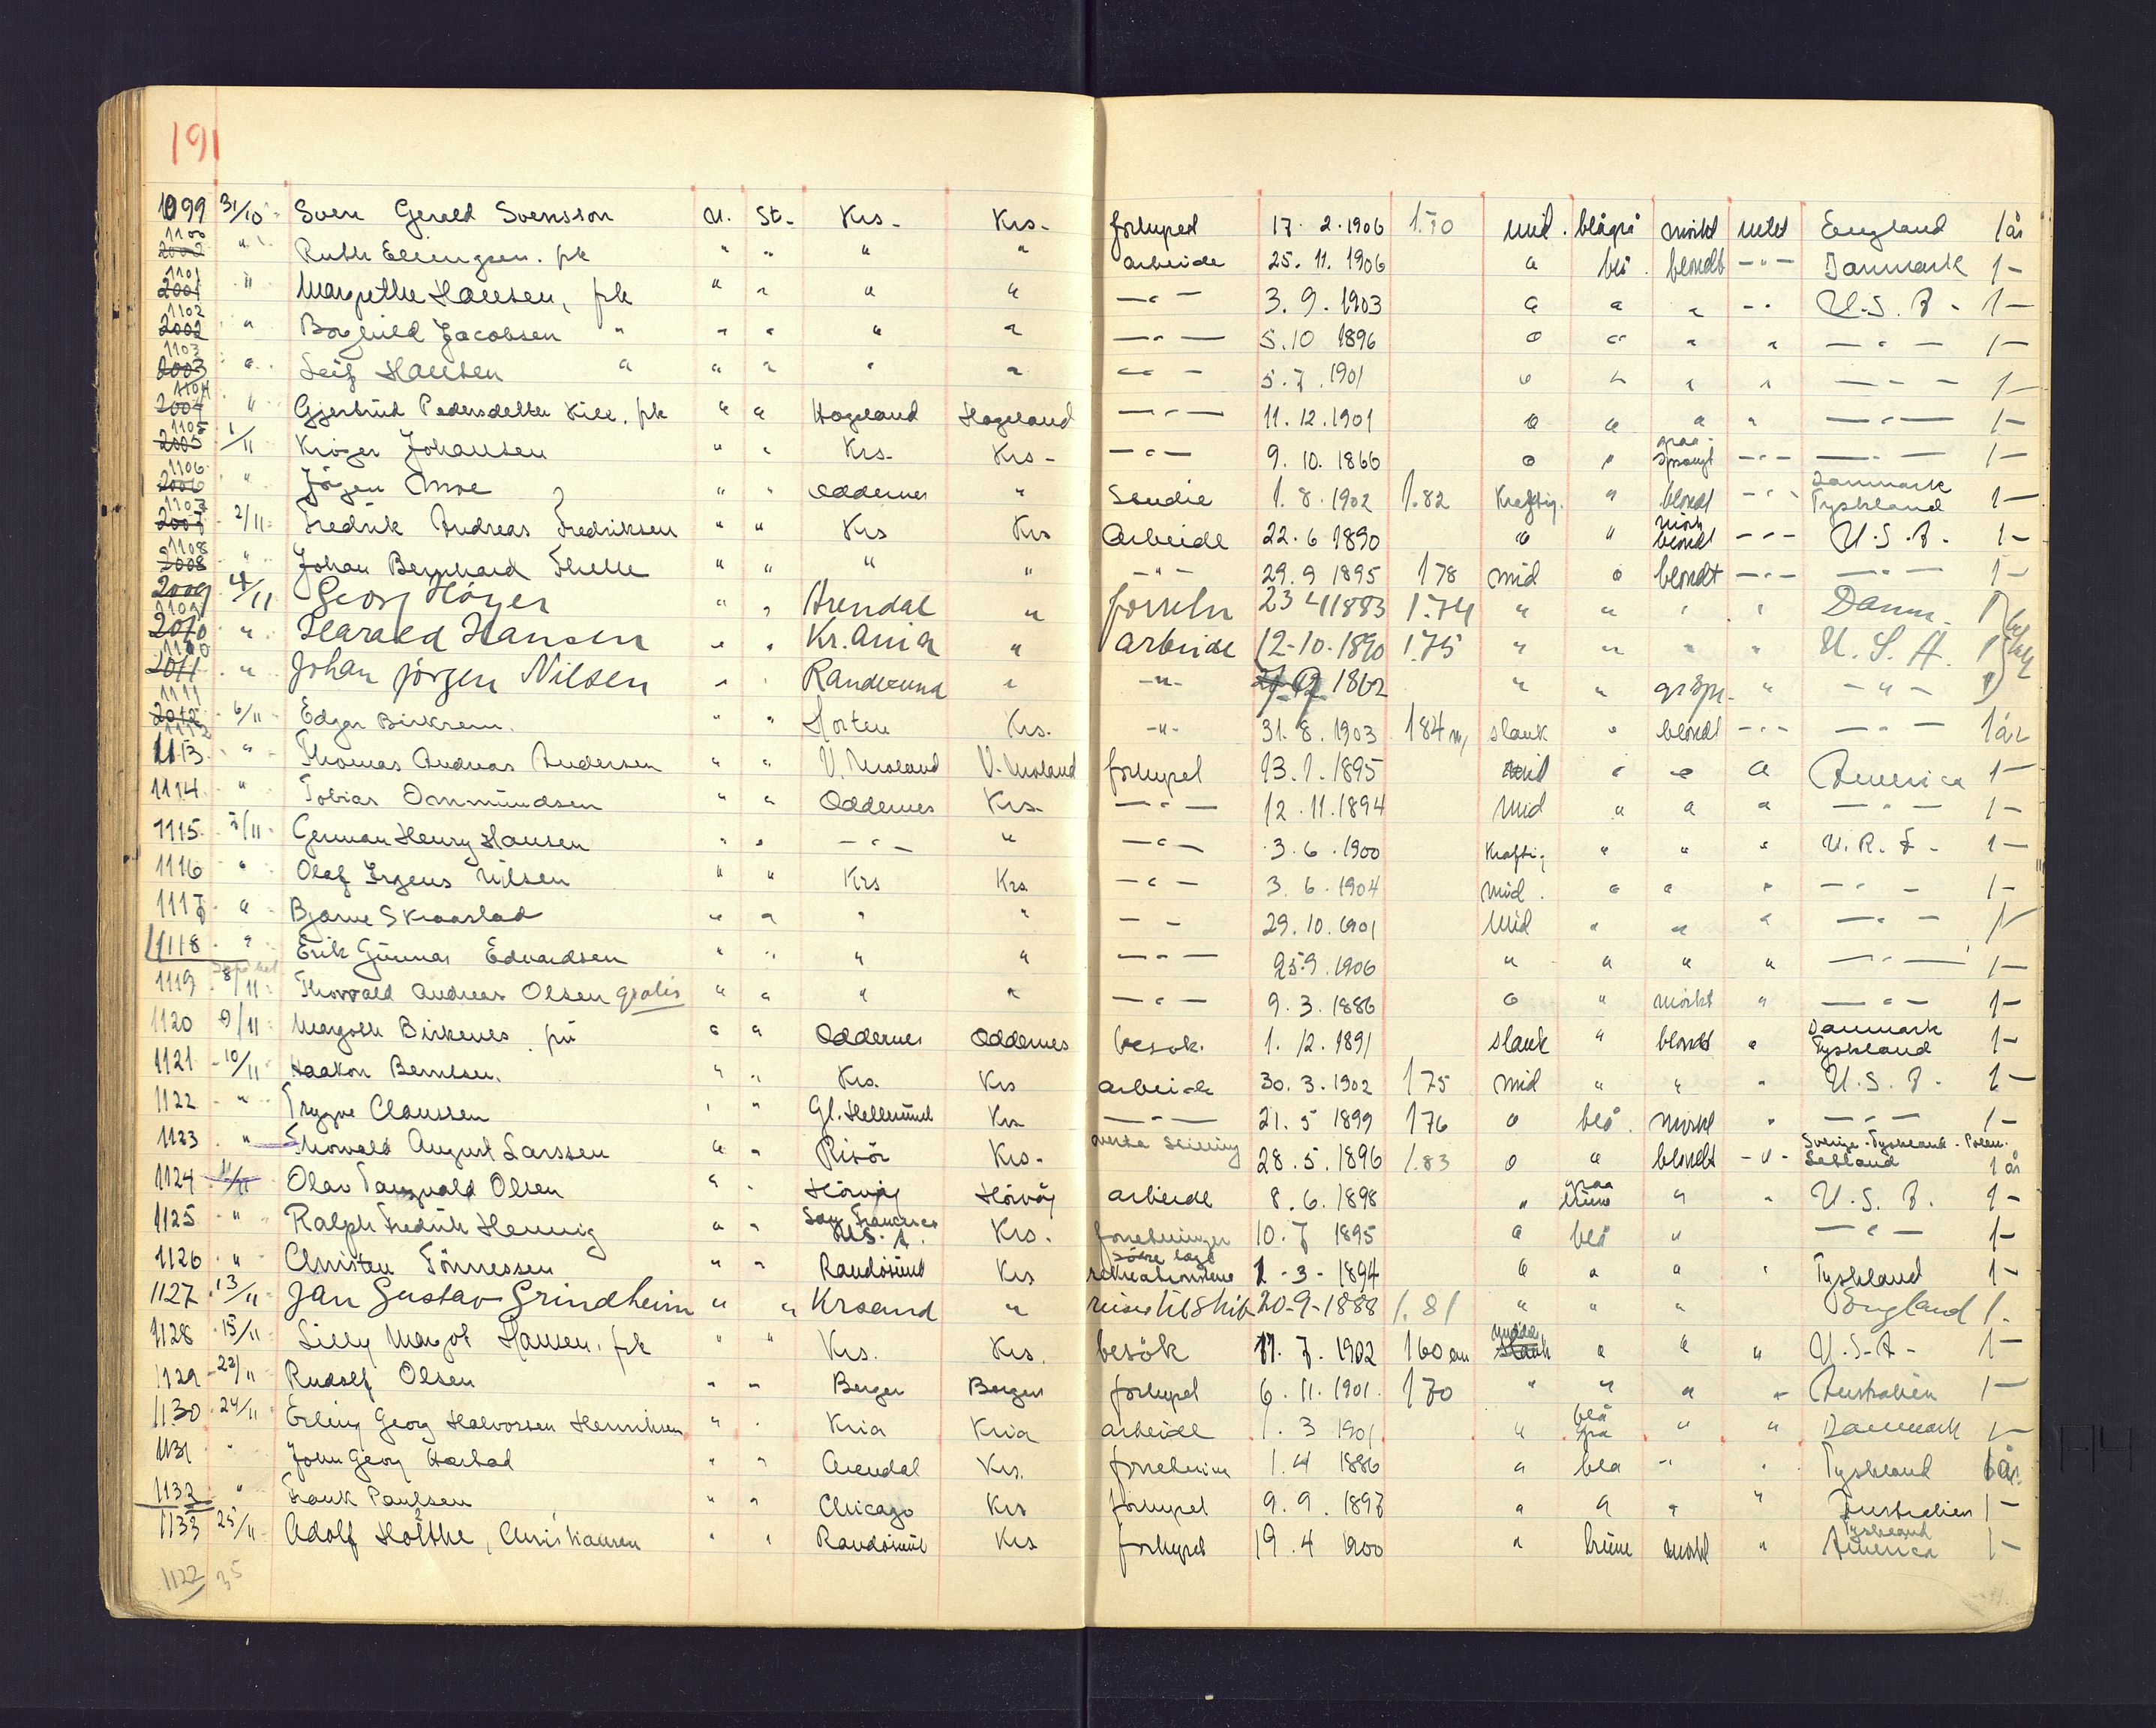 191
1099 31/10 Sven Gerald Svensson U. St. Krs. Krs. forhyret 17.2.1906 1.70 mid. blågrå mörkt udet England 1 år
1100 2002 " Ruth Ellingsen. frk " " " " arbeide 25.11.1906 " blå. blondt -"- Danmark 1 -
1101 2001 " Margrethe Hansen, frk " " " " -"- 3.9.1903 " " " -"- U.S.A. 1 -
1102 2002 " Borghild Jacobsen " " " " " -"- 5.10 1896 " " " " -"- 1 -
1103 2003 " Leif Hansen " " " " " -"- 5.7.1901 " " " " -"- 1 -
1104 2004 " Gjertrud Pedersdatter Kile. frk " " Hageland Hageland -"- 11.12.1901 " " " " -"- 1 -
1105 2005 1/11 Kröger Johansen " " Krs. Krs. -"- 9.10.1866 " " graa-sprængt -"- -"- 1 -
1106 2006 " Jögen Moe " " Oddernes " Studie 1.8.1902 1.82 Kraftig. " blondt -"- Danmark Tyskland 1 -
1107 2007 2/11 Fredrik Andreas Fredriksen " " Krs Krs Arbeide 22.6 1890 " " mörk blondt -"- U.S.A. 1 -
1108 2008 " Johan Bernhard Thelle " " " " -"- 29.9 1895 178 mid " blondt -"- -"- 1 -
2009 1109 4/11 Georg Höyer " " Arendal " forretn 23 4 1883 1.74 " " " " Danm. 1
2010 1110 " Harald Hansen " " Kr.ania " arbeide 12-10-1890 1.75 " " " " U.S.A. 1
2011 1111 " Johan Jörgen Nilsen " " Randesund " -"- 1862 " " gråspr. " -"- 1
2012 1112 6/11 Edgar Birkrem. " " Horten Krs. -"- 31.8.1903 184 m, slank " blondt -"- -"- 1 år
1113 " Thomas Andreas Andersen " " V. Moland V. Moland forhyret 13.1.1895 mid " " " America 1 -
1114 " Tobias Ommundsen " " Oddernes Krs. -"- 12.11.1894 mid " " " -"- 1 -
1115 7/11 German Henry Hansen " " -"- " -"- 3.6.1900 Kraftig " " " 1 -
1116 " Olaf Irgens Nilsen " " Krs Krs -"- 3.6.1904 mid. " " " -"- 1 -
1117 " Bjarne Skraastad " " " " - - 29.10.1901 mid " " " -"- 1
1118 " Erik Gunnar Edvardsen " " " " -"- 25.9.1906 " " " " -"- 1 -
1119 8/11 Thorvald Andreas Olsen gratis " " " " -"- 9.3.1886 " " mörkt " -"- 1 -
1120 9/11 Margoth Birkenes fru " " Oddernes Oddernes besök. 1.12.1891 slank " blondt " Danmark Tyskland 1 -
1121 10/11 Haakon Berntsen. " " Krs. Krs arbeide 30.3.1902 175 mid " " " U.S.A. 1 -
1122 " Trygve Claussen " " Gl. Hellesund Krs -"- 21.5 1899 176 " blå. mörkt " -"- 1 -
1123 " Thorvald August Larssen " " Risör Krs. stilling 28.5.1896 1.83 " " blondt -"- Sverige-Tyskland-Polen- Letland 1 år
1124 11/11 Olav Tangvald Olsen " " Hövåg Hövåg arbeide 8.6.1898 " graa brune " " U.S.A. 1 -
1125 " Ralph Fredrik Hennig " " San Francisco U.S.A. Krs. forretninger 10.7 1895 " blå " -"- 1 -
1126 " Christen Tönnessen " " Randösund Krs 1-3-1894 " " " " Tyskland 1 -
1127 13/11 Jan Gustav Grindheim " " Krsand " reise til skib 20-9-1888 1.81 " " " England 1.
1128 15/11 Lilly Margot Hansen, frk " " Krs. Krs. besök 11.7.1902 160 cm middel slank " " " U.S.A- 1 -
1129 22/11 Rudolf Olsen " " Bergen Bergen forhyret 6.11.1901. 170 " " " " Australien 1 -
1130 24/11 Erling Georg Halvorsen Henriksen " " Kria Kria arbeide 1.3 1901 " blå grå " " Danmark 1 -
1131 " John Georg Harstad " " Arendal Krs. forretning 1.4 1886 " blå " " Tyskland 1 år
1132 " Frank Paulsen " " Chicago Krs forhyret 9.9.1897 " " " " Australien 1 -
1133 25/11 Adolf Holthe, Christiansen " " Randösund Krs forhyret 19.4 1900 " brune mörkt " Tyskland America 1 -
1122 35